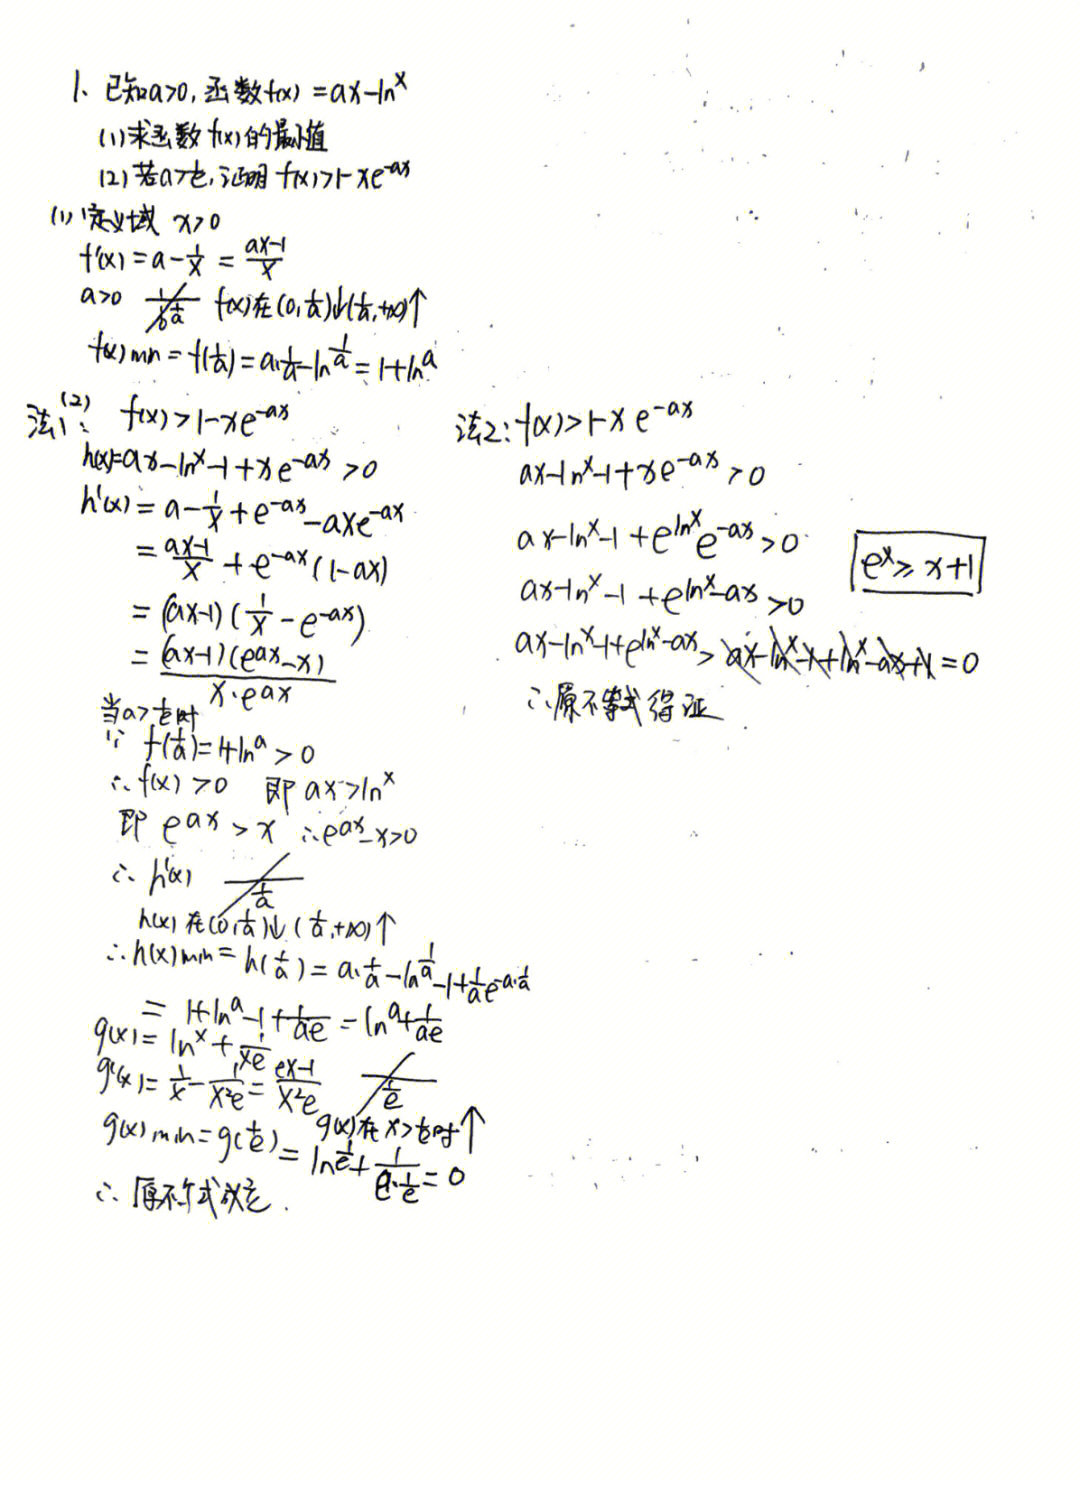 1、已知a>0,函数f(x)=ax-lnx
(1)求函数f(x)的最小值
(2)若a>1/e,证明f(x)>1-xe^(-ax)
(1)定义域 x>0
f'(x)=a-1/x=(ax-1)/x
a>0 1/a f(x)在(0,1/a)↓(1/a,+∞)↑
f(x)min=f(1/a)=a·1/a-ln1/a=1+lna
(2)
法1: f(x)>1-xe^(-ax)
h(x)=ax-lnx-1+xe^(-ax)>0
h'(x)=a-1/x+e^(-ax)-axe^(-ax)
=(ax-1)/x+e^(-ax)(1-ax)
=(ax-1)(1/x-e^(-ax))
=(ax-1)(e^(ax)-x)/(x·e^(ax))
当a>1/e时
∵ f(1/a)=1+lna>0
∴f(x)>0 即ax>lnx
即 e^(ax)>x ∴e^(ax)-x>0
∴ h'(x) 1/a
h(x)在(0,1/a)↓(1/a,+∞)↑
∴h(x)min=h(1/a)=a·1/a-ln1/a-1+1/a e^(-a·1/a)
=1+lna-1+1/(ae)=lna+1/(ae)
g(x)=lnx+1/(xe)
g'(x)=1/x-1/(x²e)=(ex-1)/(x²e) 1/e
g(x)在x>1/e时↑
g(x)min=g(1/e)=ln1/e+1/(e·1/e)=0
∴原不等式成立.
法2:f(x)>1-xe^(-ax)
ax-lnx-1+xe^(-ax)>0
ax-lnx-1+e^(lnx)e^(-ax)>0
ax-lnx-1+e^(lnx-ax)>0
e^x≥x+1
ax-lnx-1+e^(lnx-ax)>ax-lnx-1+lnx-ax+1=0
∴原不等式得证